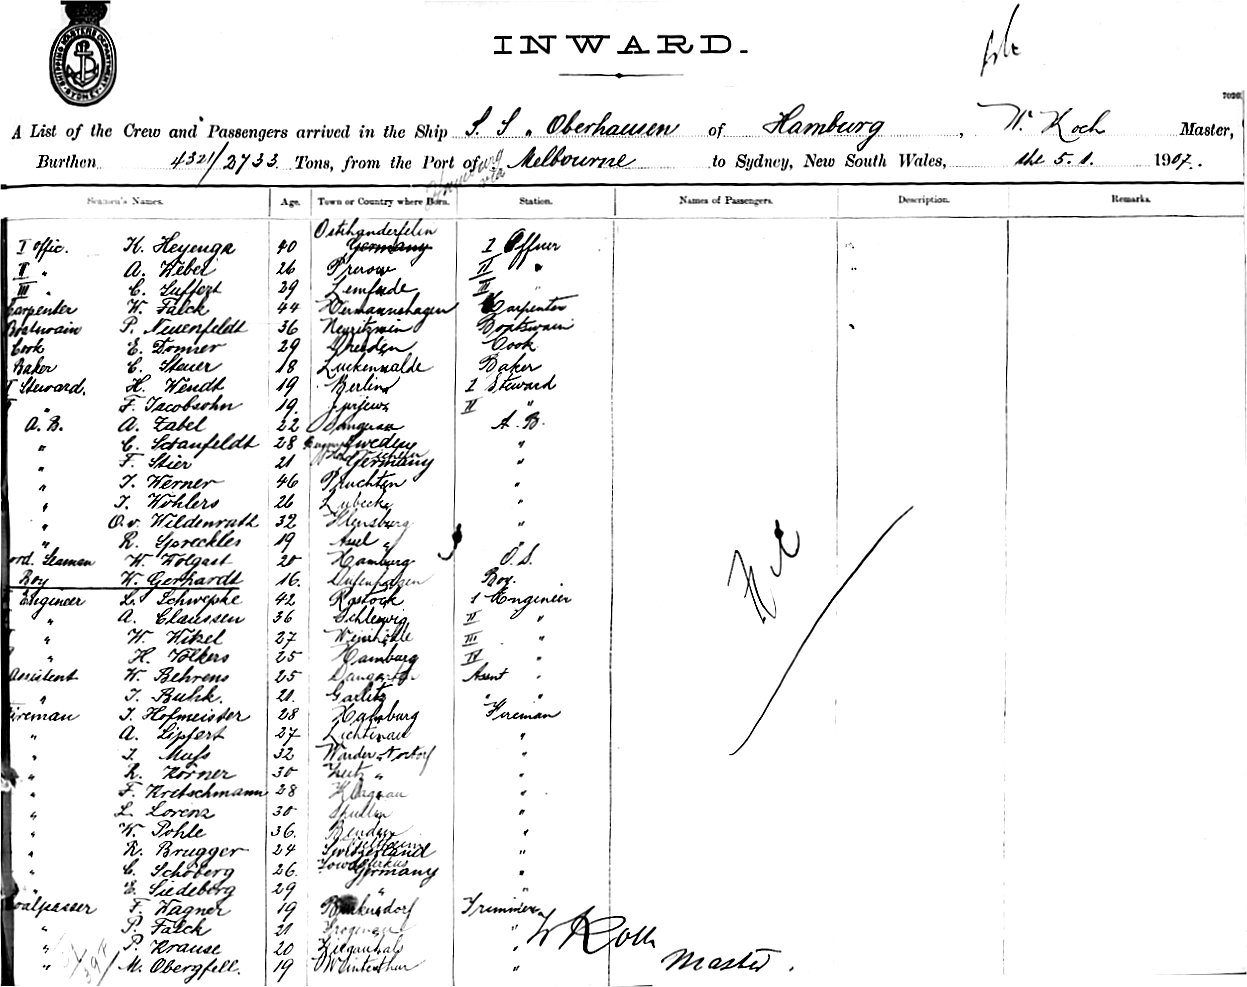 SHIPPING MASTERS DEPARTMENT SYDNEY
INWARD.
7020
A List of the Crew and Passengers arrived in the Ship S. S „ Oberhausen of Hamburg , W. Koch Master,
Burthen 4321/2733 Tons, from the Port of Melbourne to Sydney, New South Wales, the 5. 1. 1907.
Seamen's Names. Age. Town or Country where Born. Station. Names of Passengers. Description. Remarks.
I Offic. K. Heyenga 40 Germany I Officer
II „ A. Weber 26 Prerow II „
III „ C. Luffert 29 Lemförde III „
Carpenter W. Falck 44 Hermannshagen Carpenter
Boatswain P. Neuenfeldt 36 Boatswain
Cook E. Donner 29 Dresden Cook
Baker C. Steuer 18 Luckenwalde Baker
I Steward. H. Wendt 19 Berlin I Steward
„ F. Jacobsohn 19. Jurjew II „
A. B. A. Zabel 22 A. B.
„ C. Schaufeldt 28 Sweden „
„ F. Stier 21 Germany „
„ J. Werner 46 Pruchten „
„ J. Wohlers 26 Lubeck „
„ O. v. Wildenrath 32 Flensburg „
„ R. Spreckles 19 Assel „
ord. Seaman W. Wolgast 20 Hamburg O. S.
Boy W. Gerhardt 16. Boy.
Engineer L. Schwepke 42 Rostock 1 Engineer
„ A. Claussen 36 Schleswig II „
„ W. Witzel 27 III „
„ H. Völkers 25 Hamburg IV „
Assistent W. Behrens 25 Assnt „
„ J. Buhk. 21. Garlitz „ „
Fireman J. Hofmeister 28 Hamburg Fireman
„ A. Lipfert 27 Lichtenau „
„ J. Mufs 32 Warder Nortorf „
„ R. Körner 30 Zeitz „ „
„ F. Kretschmann 28 „
„ L. Lorenz 30 „
„ W. Pohle 36. „
„ K. Brugger 24 Switzerland „
„ C. Schöberg 26. Germany „
„ E. Siedeborg 29 „ „
Coalpasser F. Wagner 19 Trimmer
„ P. Falck 21 „
„ P. Krause 20 Ziegenhals
„ M. Obergfell. 19 Winterthur „
Nil
W Koch
Master.